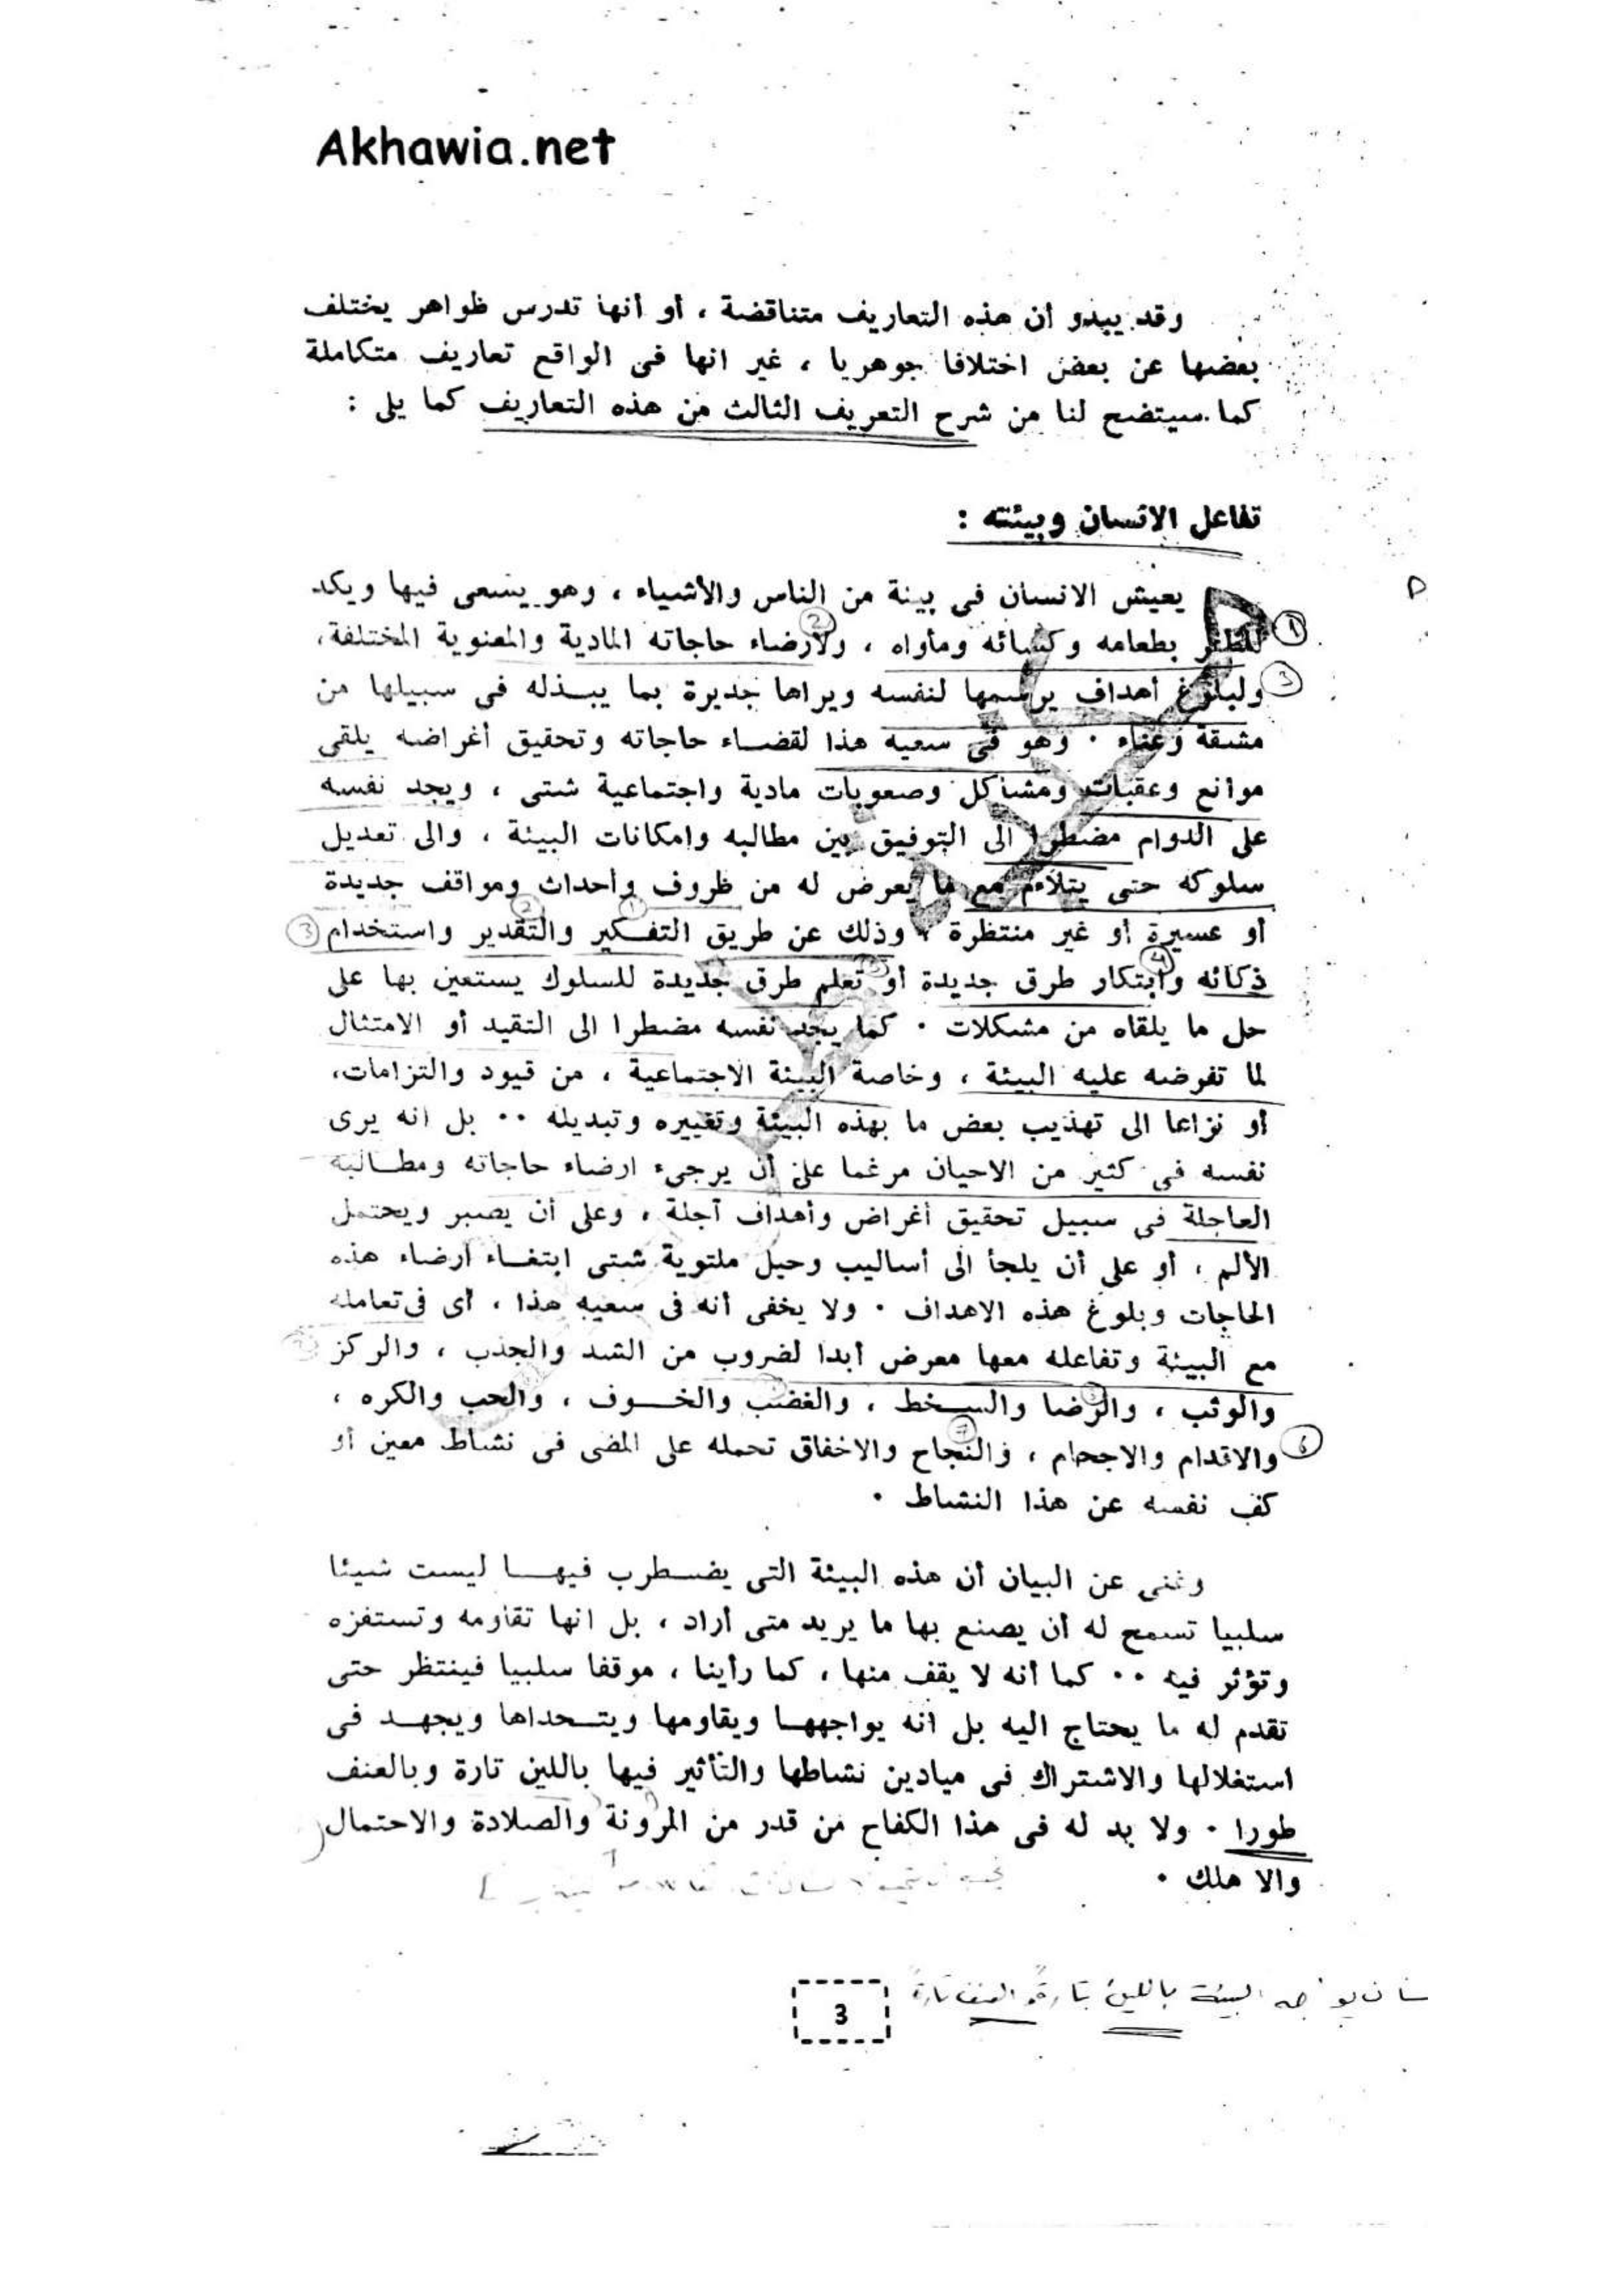 Akhawia.net
وقد يبدو أن هذه التعاريف متناقضة ، أو أنها تدرس ظواهر يختلف
بعضها عن بعض اختلافا جوهريا ، غير انها فى الواقع تعاريف متكاملة
كما سيتضح لنا من شرح التعريف الثالث من هذه التعاريف كما يلى :
تفاعل الانسان وبيئته :
يعيش الانسان فى بيئة من الناس والأشياء ، وهو يسعى فيها ويكد
للظفر بطعامه وكسائه ومأواه ، ولارضاء حاجاته المادية والمعنوية المختلفة،
ولبلوغ أهداف يرسمها لنفسه ويراها جديرة بما يبذله فى سبيلها من
مشقة وعناء ٠ وهو فى سعيه هذا لقضاء حاجاته وتحقيق أغراضه يلقى
موانع وعقبات ومشاكل وصعوبات مادية واجتماعية شتى ، ويجد نفسه
على الدوام مضطرا الى التوفيق بين مطالبه وامكانات البيئة ، والى تعديل
سلوكه حتى يتلاءم مع ما يعرض له من ظروف وأحداث ومواقف جديدة
أو عسيرة أو غير منتظرة ، وذلك عن طريق التفكير والتقدير واستخدام
ذكائه وابتكار طرق جديدة أو تعلم طرق جديدة للسلوك يستعين بها على
حل ما يلقاه من مشكلات ٠ كما يجد نفسه مضطرا الى التقيد أو الامتثال
لما تفرضه عليه البيئة ، وخاصة البيئة الاجتماعية ، من قيود والتزامات،
أو نزاعا الى تهذيب بعض ما بهذه البيئة وتغييره وتبديله ٠٠ بل انه يرى
نفسه فى كثير من الاحيان مرغما على أن يرجىء ارضاء حاجاته ومطالبه
العاجلة فى سبيل تحقيق أغراض وأهداف آجلة ، وعلى أن يصبر ويحتمل
الألم ، أو على أن يلجأ الى أساليب وحيل ملتوية شتى ابتغاء ارضاء هذه
الحاجات وبلوغ هذه الاهداف ٠ ولا يخفى أنه فى سعيه هذا ، أى فى تعامله
مع البيئة وتفاعله معها معرض أبدا لضروب من الشد والجذب ، والركز
والوثب ، والرضا والسخط ، والغضب والخوف ، والحب والكره ،
والاقدام والاحجام ، والنجاح والاخفاق تحمله على المضى فى نشاط معين أو
كف نفسه عن هذا النشاط ٠
وغنى عن البيان أن هذه البيئة التى يضطرب فيها ليست شيئا
سلبيا تسمح له أن يصنع بها ما يريد متى أراد ، بل انها تقاومه وتستفزه
وتؤثر فيه ٠٠ كما أنه لا يقف منها ، كما رأينا ، موقفا سلبيا فينتظر حتى
تقدم له ما يحتاج اليه بل انه يواجهها ويقاومها ويتحداها ويجهد فى
استغلالها والاشتراك فى ميادين نشاطها والتأثير فيها باللين تارة وبالعنف
طورا ٠ ولا بد له فى هذا الكفاح من قدر من المرونة والصلادة والاحتمال
والا هلك ٠
البيئة باللين تارة العنف تارة
3